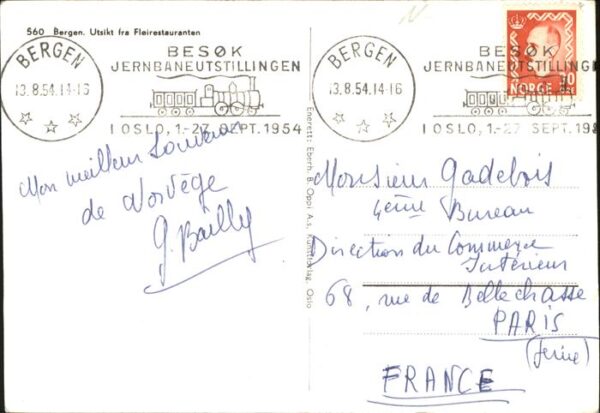 560 Bergen. Utsikt fra Fløirestauranten
BERGEN
13.8.54.14-16
BESØK
JERNBANEUTSTILLINGEN
I OSLO, 1.-27. SEPT. 1954
BERGEN
13.8.54.14-16
BESØK
JERNBANEUTSTILLINGEN
I OSLO, 1.-27 SEPT. 19
NORGE
Mon meilleur Souvenir
de Norvège
G. Bailly
Enerett: Eberh. B. Oppi A.s, Kunstforlag, Oslo
Monsieur Gadebois
4ème Bureau
Direction du Commerce
Intérieur
68, rue de Bellechasse
PARIS
(Seine)
FRANCE